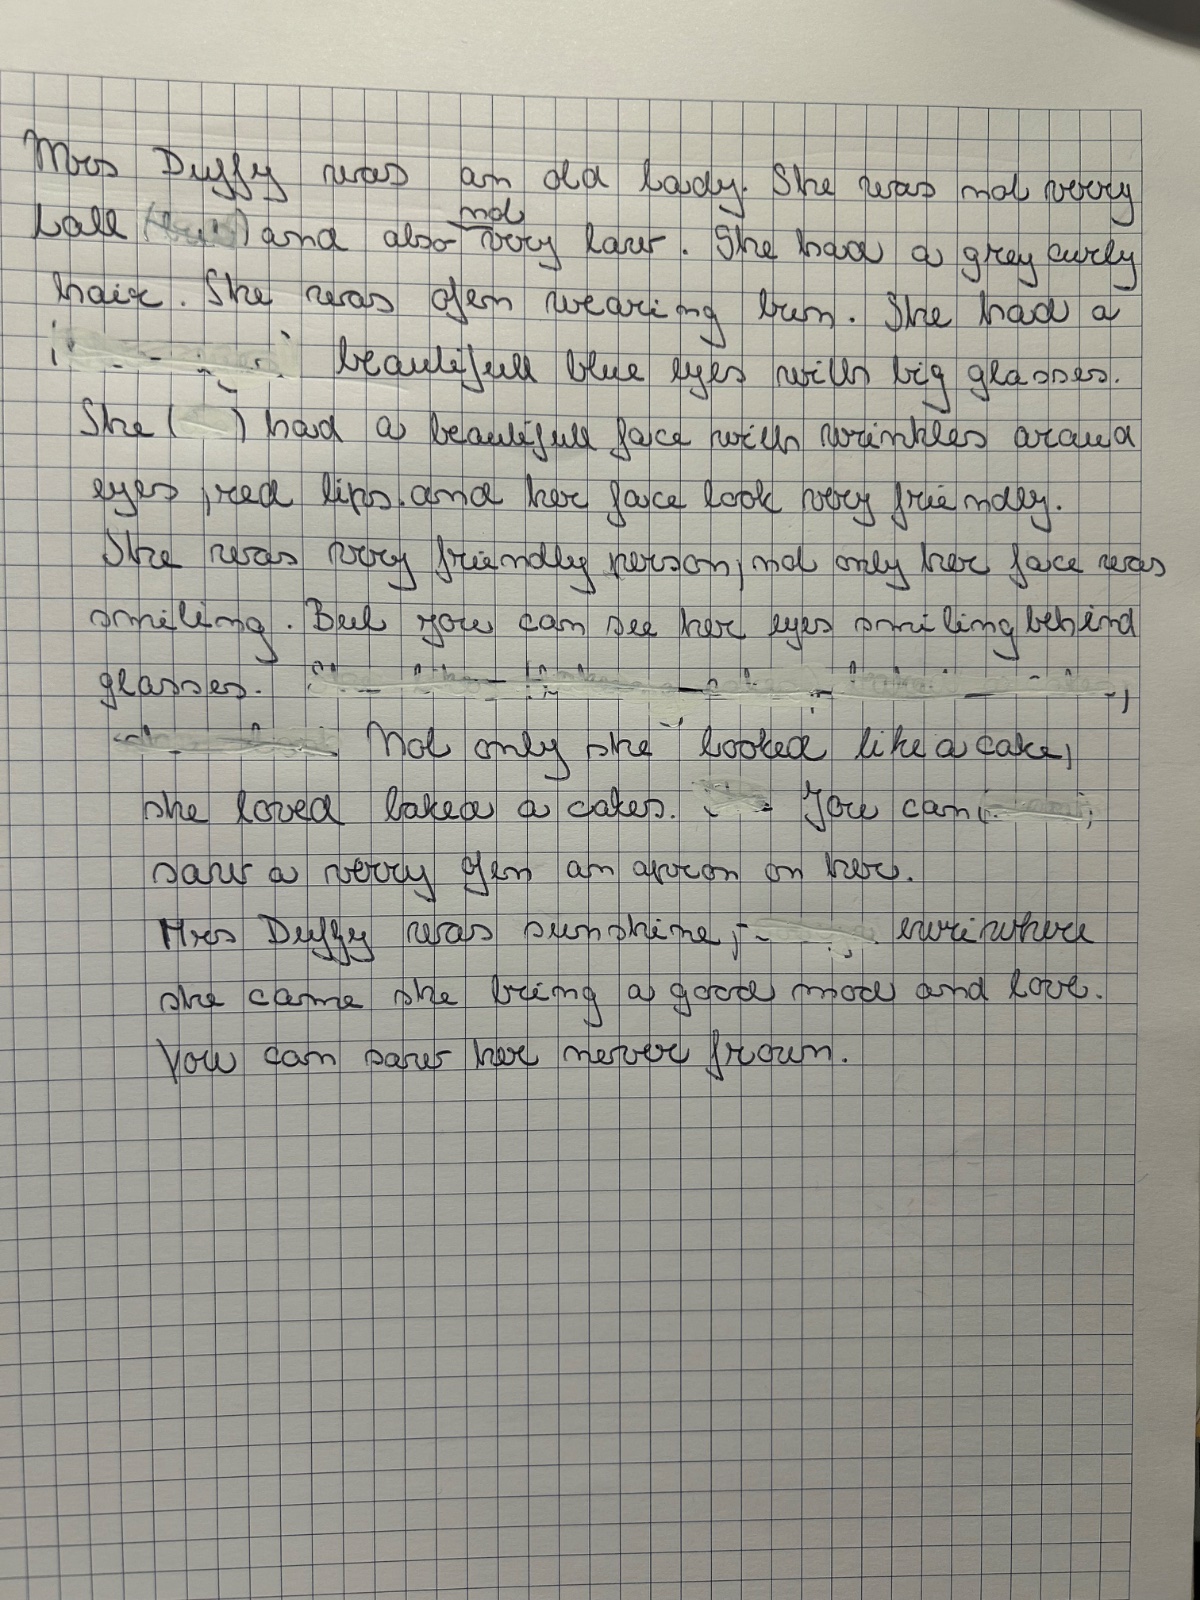 Mrs Duffy was an old lady. She was not verry
tall and also not very law. She had a grey curly
hair. She was ofen wearing bun. She had a
beautifull blue eyes with big glasses.
She ( ) had a beautifull face with wrinkles araund
eyes, red lips. and her face look very friendly.
She was very friendly person, not only her face was
smiling. But you can see her eyes smiling behind
glasses.
Not only she looked like a cake,
she loved baked a cakes. You can
saw a verry ofen an apron on her.
Mrs Duffy was sunshine, ewriwhere
she came she bring a good mod and love.
You can saw her never frown.